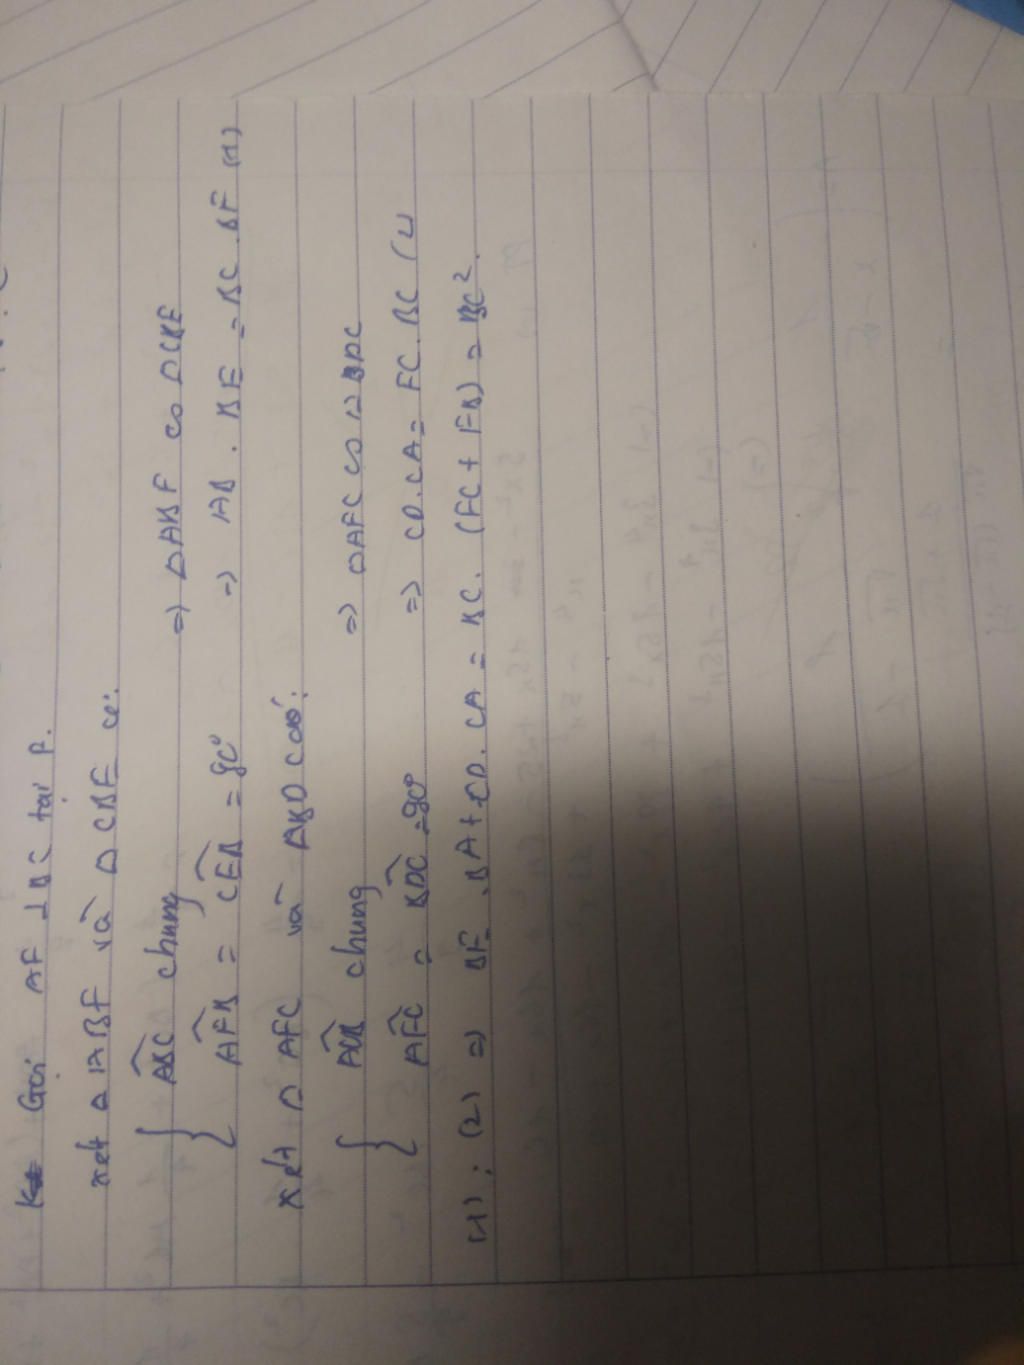 Gọi AF ⊥ BC tại F.
xét Δ ABF và Δ CBE có:
{ ABC chung => ΔABF ∽ ΔCBE
{ AFB = CEB = 90° => AB . BE = BC . BF (1)
xét Δ AFC và ΔBDC có:
{ ACB chung => ΔAFC ∽ ΔBDC
{ AFC = BDC = 90° => CD.CA = FC . BC (2
(1) ; (2) => BE . BA + CD . CA = BC . (FC + FB) = BC².